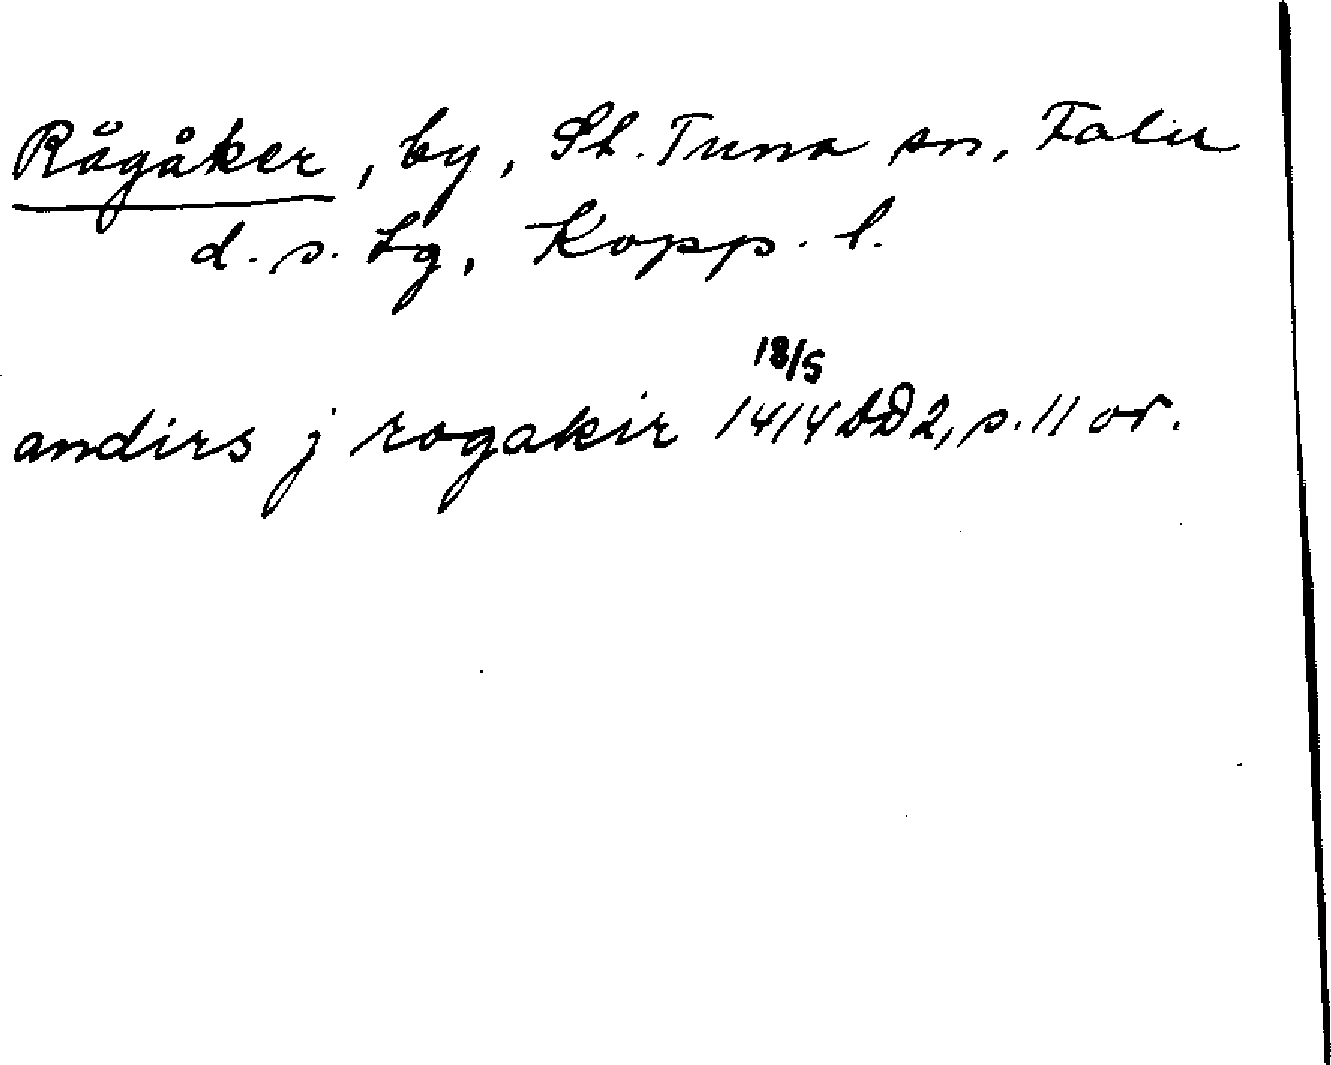 Rågåker, by, St. Tuna sn, Falu
d. s. lg, Kopp. l.
18/5
andirs j rogakir 1414 DD 2, s. 11 or.